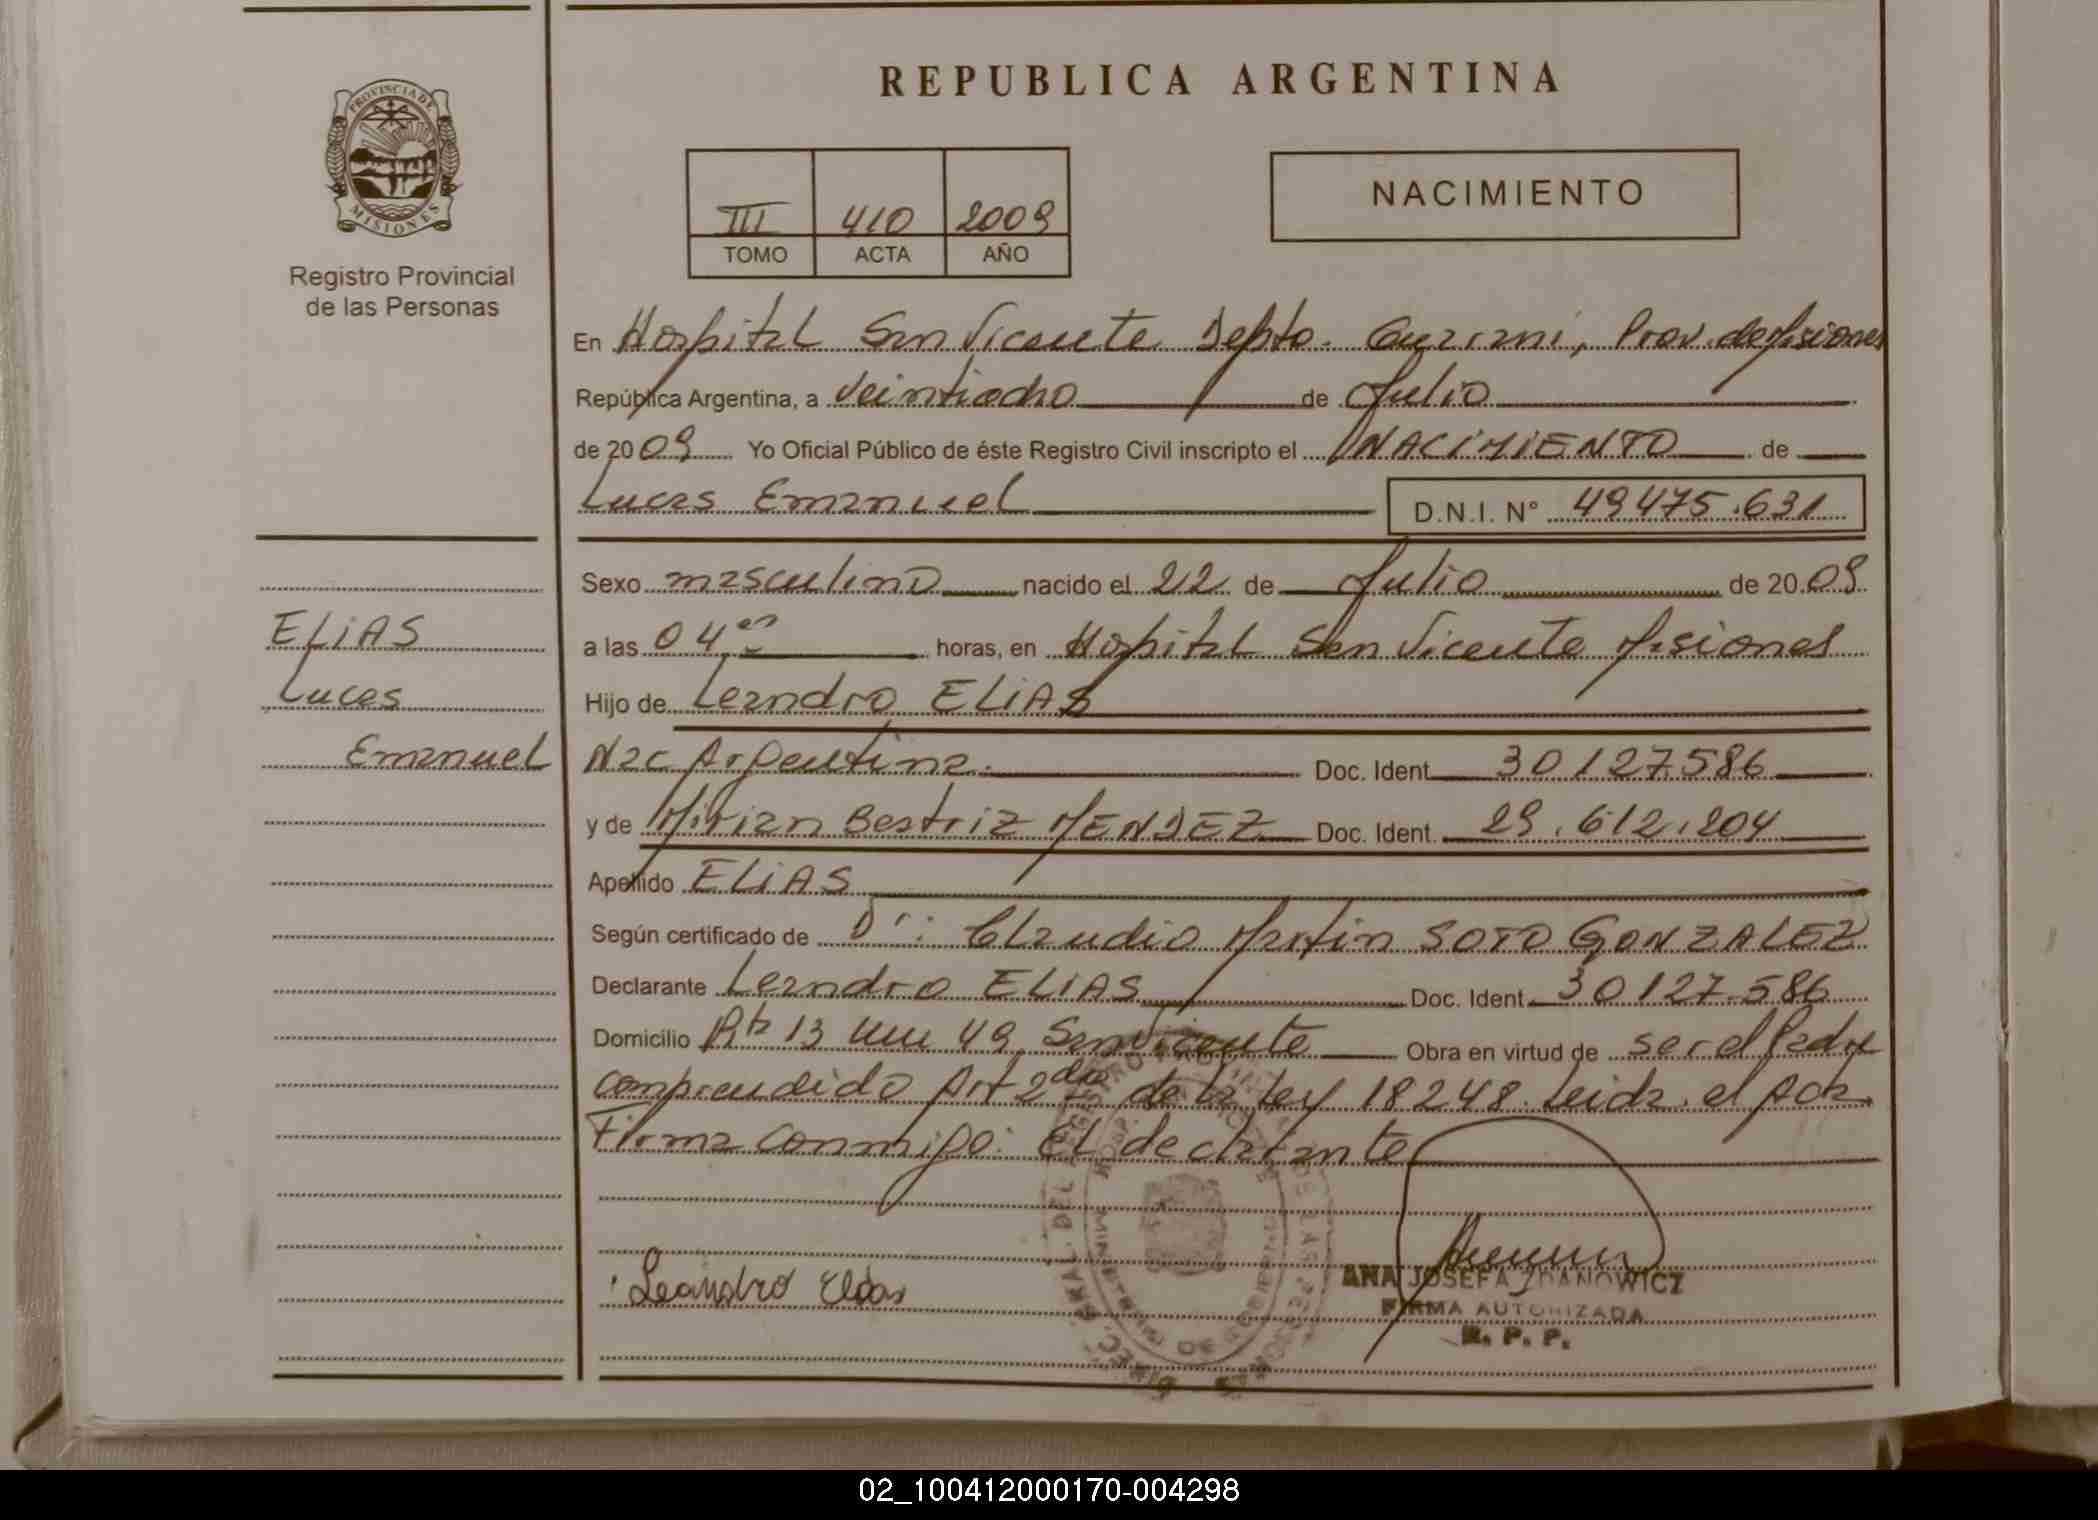 REPUBLICA ARGENTINA
PROVINCIA DE
MISIONES
Registro Provincial
de las Personas
III 410 2009
TOMO ACTA AÑO
NACIMIENTO
En Hospital San Vicente Depto. Guarani, Prov. de Misiones
República Argentina, a veintiocho de Julio
de 2009 Yo Oficial Público de éste Registro Civil inscripto el NACIMIENTO de
Lucas Emanuel D.N.I. N° 49475.631
Sexo masculino nacido el 22 de Julio de 2009
a las 04 horas, en Hospital San Vicente Misiones
Hijo de Leandro ELIAS
Nac Argentina. Doc. Ident 30127.586
y de Mirian Beatriz MENDEZ Doc. Ident. 29.612.204
Apellido ELIAS
Según certificado de Dr: Claudio Martin SOTO GONZALEZ
Declarante Leandro ELIAS Doc. Ident 30127.586
Domicilio Rta 13 km 49 San Vicente Obra en virtud de ser el Padre
comprendido Art 2do de la ley 18248. Leida el Acta
Firma conmigo: El declarante
ELIAS
Lucas
Emanuel
Leandro Elias
ANA JOSEFA ZDANOWICZ
FIRMA AUTORIZADA
R. P. P.
02_100412000170-004298